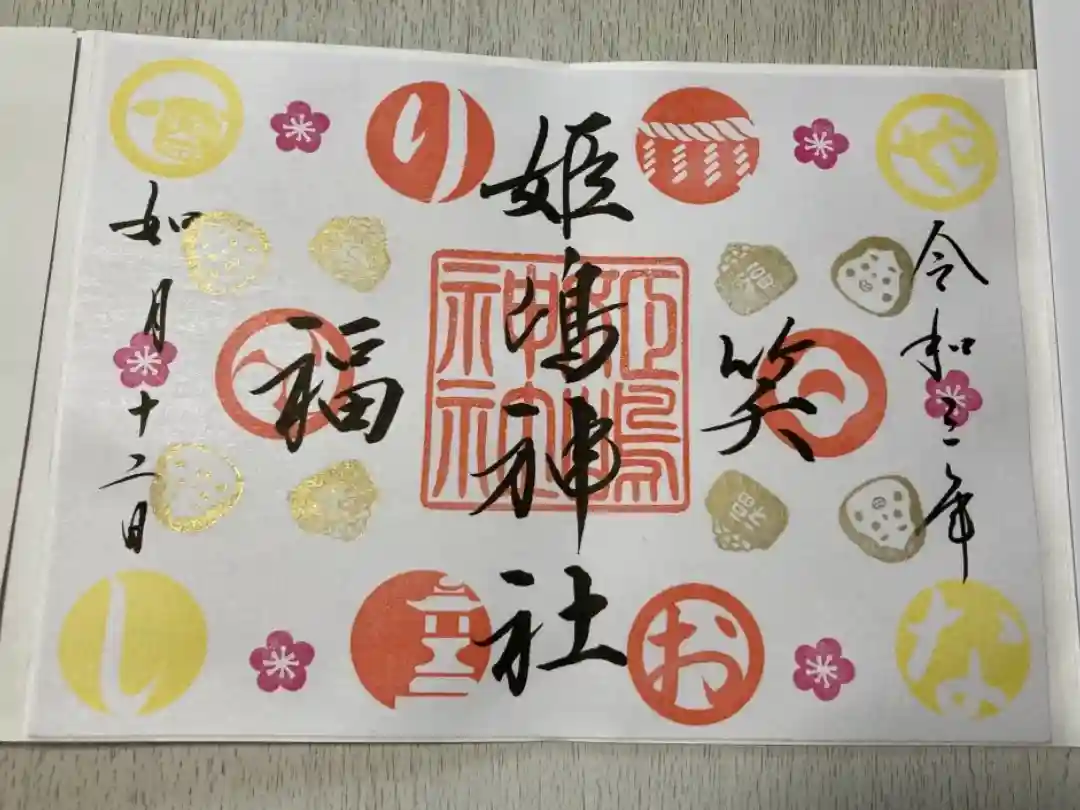 令和三年
笑
姫嶋神社
福
如月十二日
姫嶋
神社
や
り
な
お
し